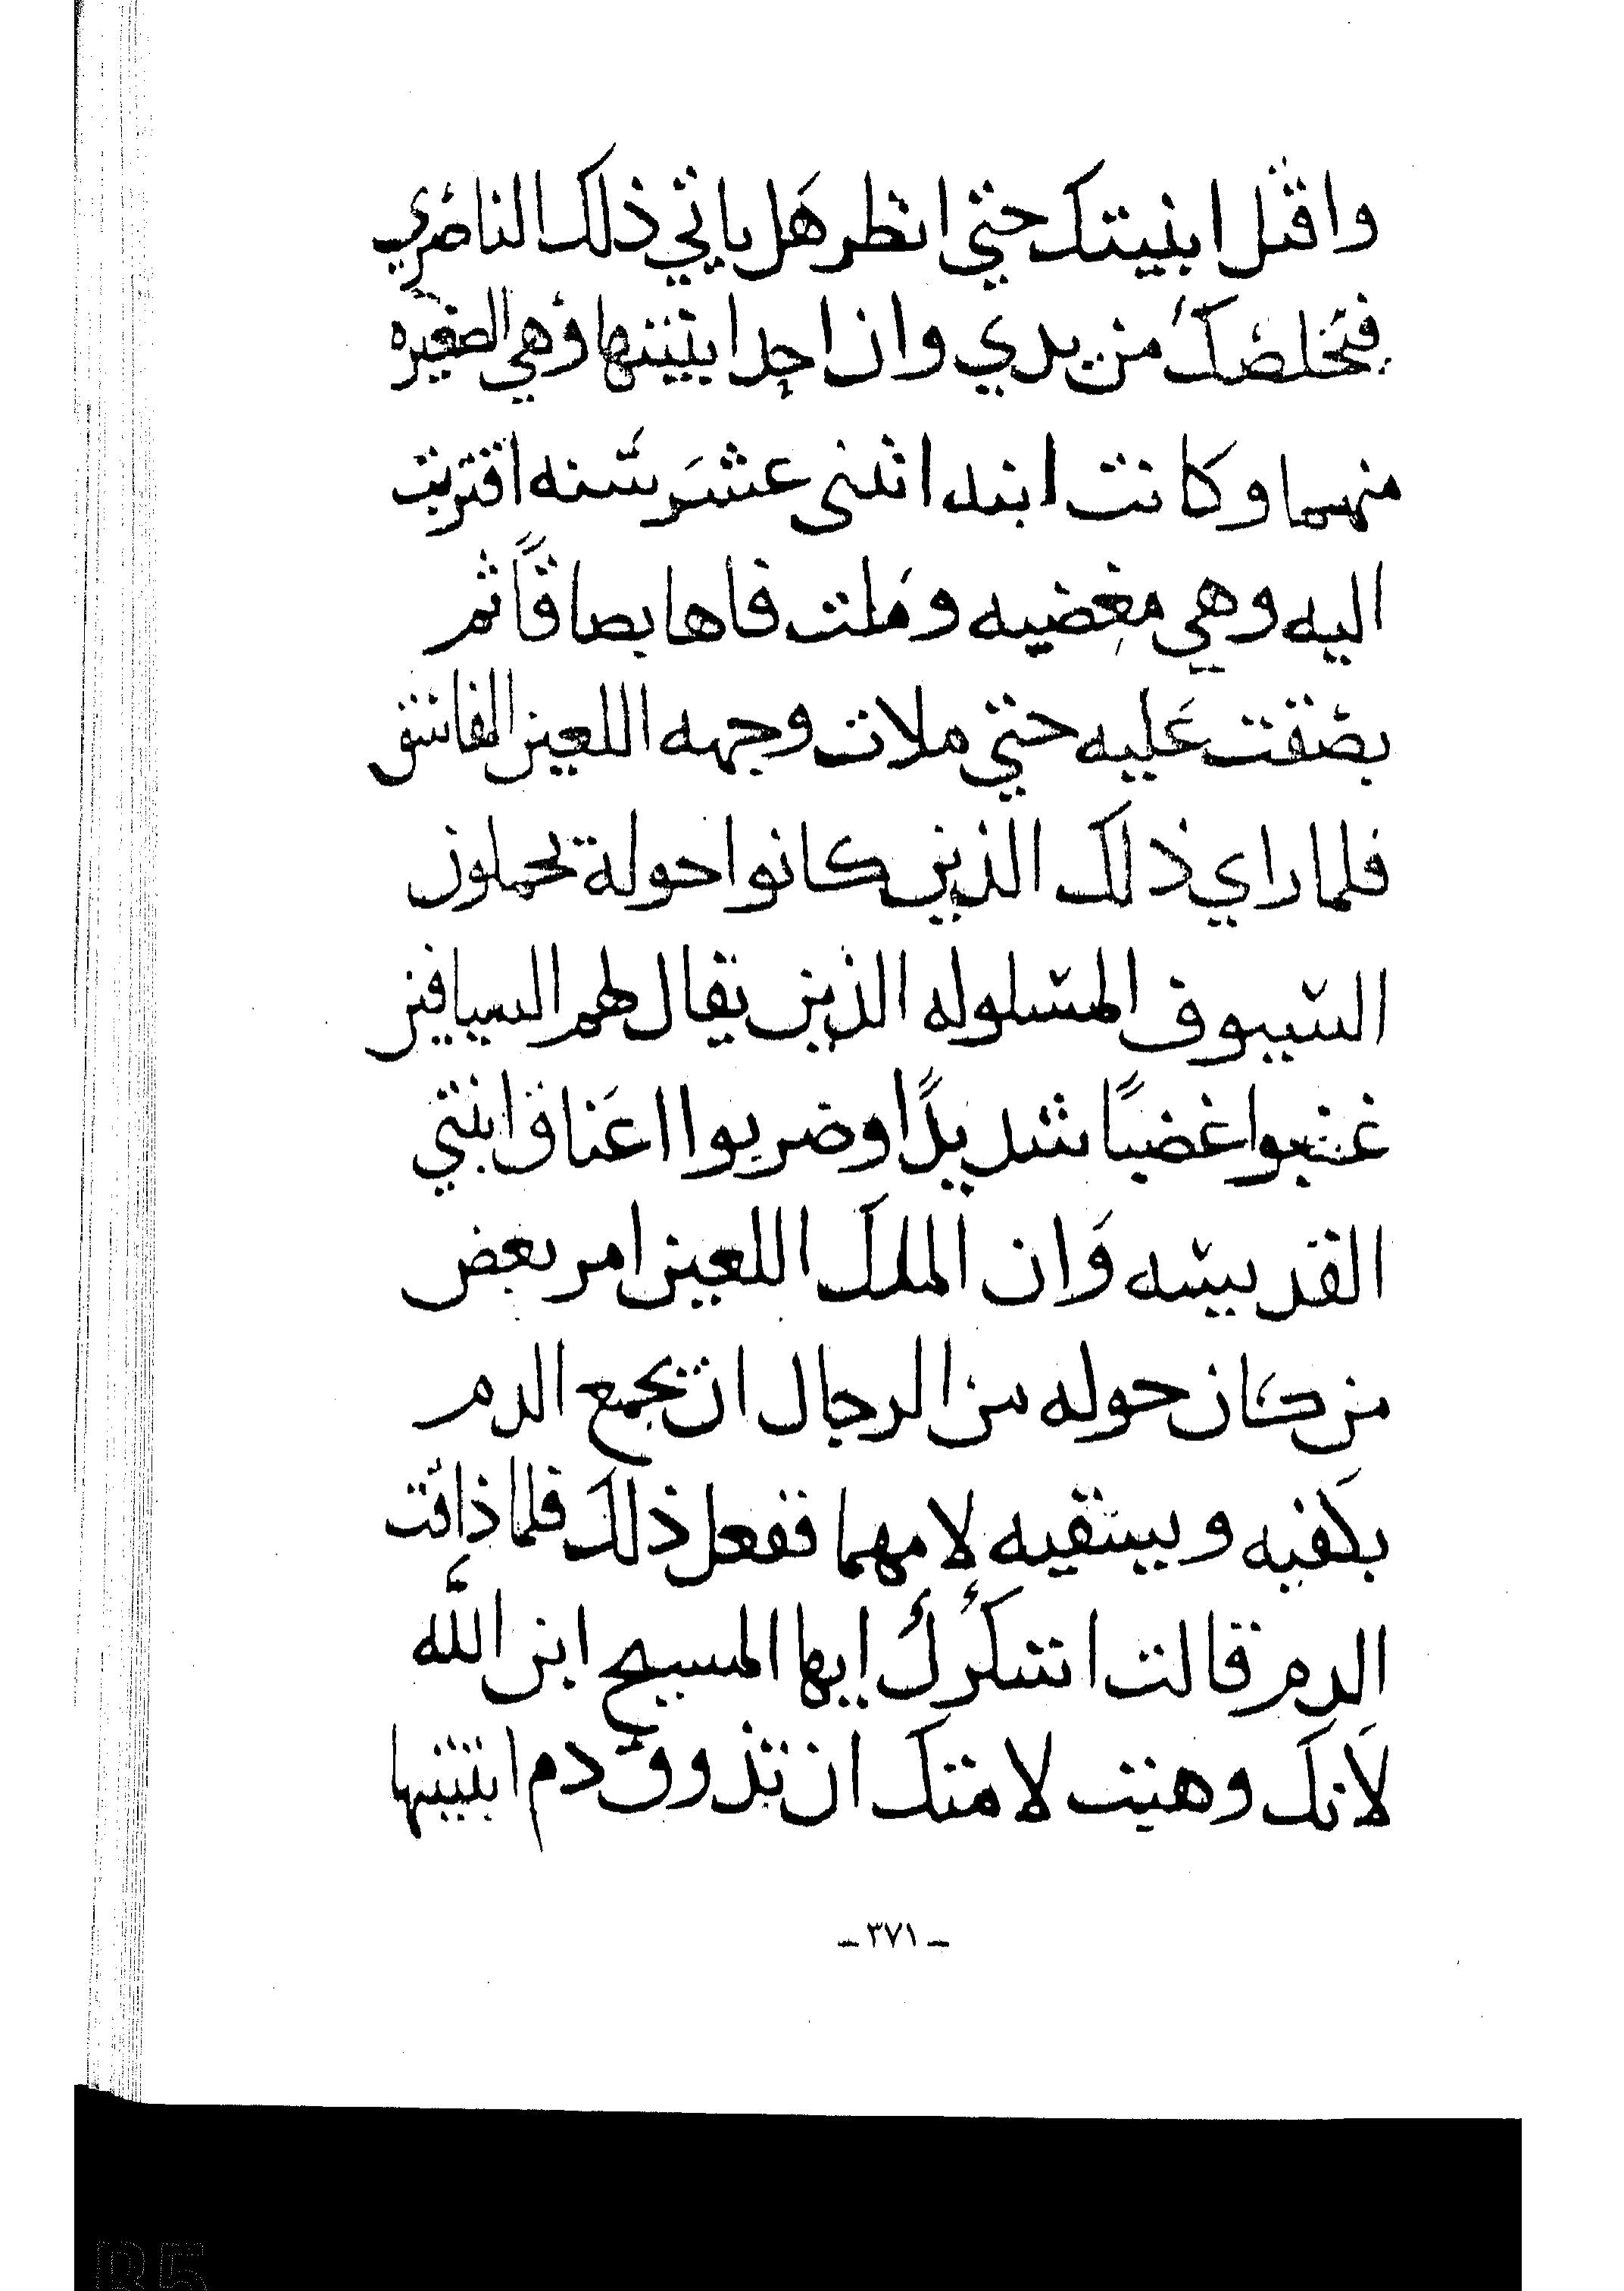 واقتل ابنيتك حتي انظر هل ياتي ذلك الناصري
فيخلصك من يدي وان احدا بنيتها وهي الصغيره
منهما وكانت ابنه اثنى عشر سنه اقتربت
اليه وهي مغضبه وملت فاها بصاقاً ثم
بصقت عليه حتي ملات وجهه اللعين الفاسق
فلما راي ذلك الذين كانوا حولة يحملون
السيوف المسلوله الذين يقال لهم السيافين
غضبوا غضباً شديداً وضربوا اعناق ابنتي
القديسه وان الملك اللعين امر بعض
من كان حوله من الرجال ان يجمع الدم
بكفيه ويسقيه لامهما ففعل ذلك فلما ذاقت
الدم قالت اشكرك ايها المسيح ابن الله
لانك وهبت لامتك ان تذوق دم ابنتيها
ـ ٣٧١ ـ
R5